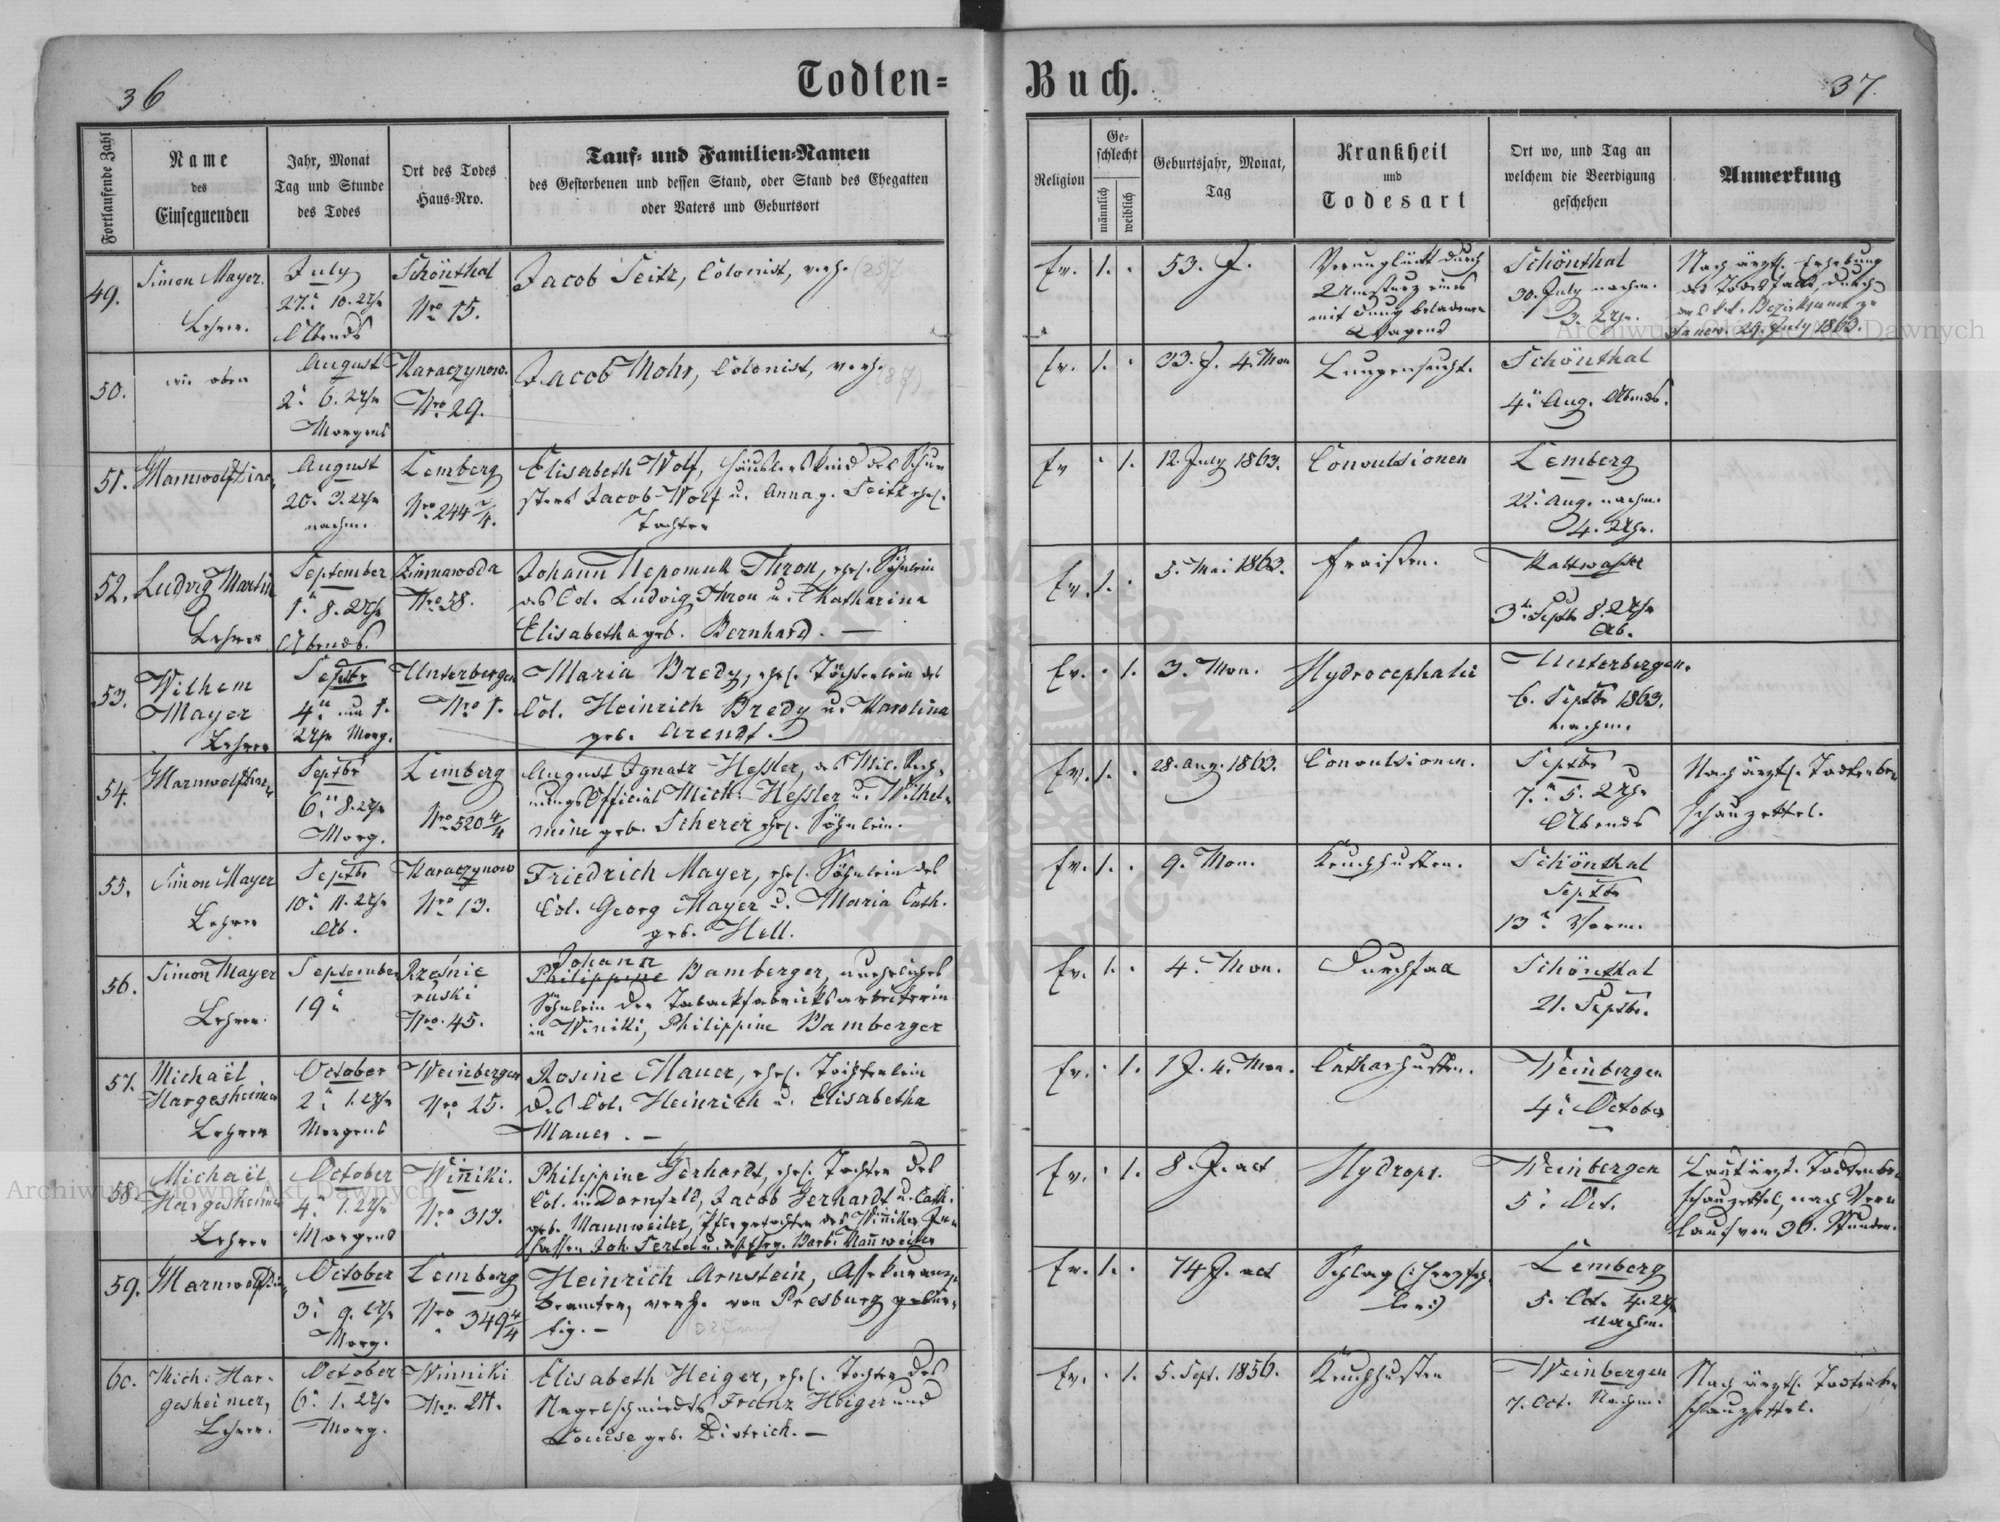 36
Todten=
Buch.
37
Fortlaufende Zahl
Name
des
Einsegnenden
Jahr, Monat
Tag und Stunde
des Todes
Ort des Todes
Haus=Nro.
Tauf= und Familien=Namen
des Gestorbenen und dessen Stand, oder Stand des Ehegatten
oder Vaters und Geburtsort
Religion
Ge=
schlecht
männlich
weiblich
Geburtsjahr, Monat,
Tag
Krankheit
und
Todesart
Ort wo, und Tag an
welchem die Beerdigung
geschehen
Anmerkung
49.
Simon Mayer.
Lehrer.
July
27. 10. Uhr
Abends
Schönthal
Nro 15.
Jacob Seitz, Colonist, verh.
Ev. 1. .
53. J.
Verunglückt durch
Umsturz eines
mit Dung beladenen
Wagens
Schönthal
30. July nachm.
3. Uhr.
Nach ärztl. Erhebung
des Todesfalls, durch
das k.k. Bezirksamt zu
Janow. 29. July 1863.
50.
wie oben
August
2. 6. Uhr
Morgens
Karaczynow.
Nro 29.
Jacob Mohr, Colonist, verh.
Ev. 1. .
33. J. 4. Mon
Lungensucht.
Schönthal
4. Aug. Abends.
51.
August
20. 3. Uhr
nachm.
Lemberg
Nro 244 2/4.
Elisabeth Wolf, Häuslerskind des Schu=
sters Jacob Wolf u. Anna g. Seitz ehel.
Tochter
Ev . 1.
12. July 1863.
Convulsionen
Lemberg
22. Aug. nachm.
4. Uhr.
52.
Ludvig Martin
Lehrer
September
1. 8. Uhr
Abends.
Zimnawoda
Nro 38.
Johann Nepomuk Thron, ehel. Söhnlein
des Col. Ludvig Thron u. Katharina
Elisabetha geb. Bernhard. —
Ev. 1. .
5. Mai 1863.
Fraisen.
Kaltwasser
3. Septb 8. Uhr
Ab.
53.
Wilhem
Mayer
Lehrer
Septbr
4. um 1.
Uhr Morg.
Unterbergen
Nro 1.
Maria Bredy, ehel. Töchterlein des
Col. Heinrich Bredy u. Karolina
geb. Arendt.
Ev. . 1.
3. Mon.
Hydrocephalie
Unterbergen.
6. Septbr 1863.
nachm.
54.
Septbr
6. 8. Uhr
Morg.
Lemberg
Nro 520 4/4
August Ignatz Hessler, des Mil. Rech=
nungs Official Mich. Hessler u. Wilhel=
mine geb. Scherer ehel. Söhnlein.
Ev. 1. .
28. Aug. 1863.
Convulsionen.
Septbr
7. 5. Uhr
Abends
Nach ärztl. Todtenbe
schauzettel.
55.
Simon Mayer
Lehrer
Septbr
10. 11. Uhr
Ab.
Karaczynow
Nro 13.
Friedrich Mayer, ehel. Söhnlein des
Col. Georg Mayer u. Maria Cath.
geb. Hell.
Ev. 1. .
9. Mon.
Keuchhusten.
Schönthal
Septbr
13. Vorm.
56.
Simon Mayer
Lehrer.
September
19
Rzesnie
ruski
Nro. 45.
Johann
Philippine Bamberger, uneheliches
Söhnlein der Tabackfabricksarbeiterin
in Winiki, Philippine Bamberger
Ev. 1. .
4. Mon.
Durchfall
Schönthal
21. Septbr.
57.
Michaël
Hargesheimer
Lehrer
October
2. 1. Uhr
Morgens
Weinbergen
Nro 25.
Rosine Mauer, ehel. Töchterlein
des Col. Heinrich u. Elisabetha
Mauer. —
Ev. . 1.
1 J. 4. Mon.
Catharhusten.
Weinbergen
4. October
58.
Michaël
Hargesheimer
Lehrer
October
4. 1. Uhr
Morgens
Winniki.
Nro 313.
Philippine Gerhardt, ehel. Tochter des
Col. in Dornfeld, Jacob Gerhardt u. Cath.
geb. Mannweiler, Pflegetochter des Winniker In=
sassen Joh. Sertel u. Barb. Mannweiler
Ev. . 1.
8. J. act
Hydrops.
Weinbergen
5. Oct.
Laut ärzt. Todtenbe
schauzettel, nach Ver=
lauf von 36. Stunden.
59.
October
3. 9. Uhr
Morg.
Lemberg
Nro 349 4/4
Heinrich Arnstein, Assekuranz=
beamter, verh. von Presburg gebür=
tig. —
Ev. 1. .
74 J. act
Schlag (: Herzfeh=
ler:)
Lemberg
5. Oct. 4. Uhr
Nachm.
60.
Mich. Har=
gesheimer,
Lehrer.
October
6. 1. Uhr
Morg.
Winniki
Nro. 211.
Elisabeth Heiger, ehel. Tochter des
Nagelschmieds Franz Heiger und
Louise geb. Dietrich. —
Ev. . 1.
5. Sept. 1856.
Keuchhusten
Weinbergen
7. Oct. Nachm.
Nach ärztl. Todtenbe
schauzettel.
Archiwum Główne Akt Dawnych
Archiwum Główne Akt Dawnych